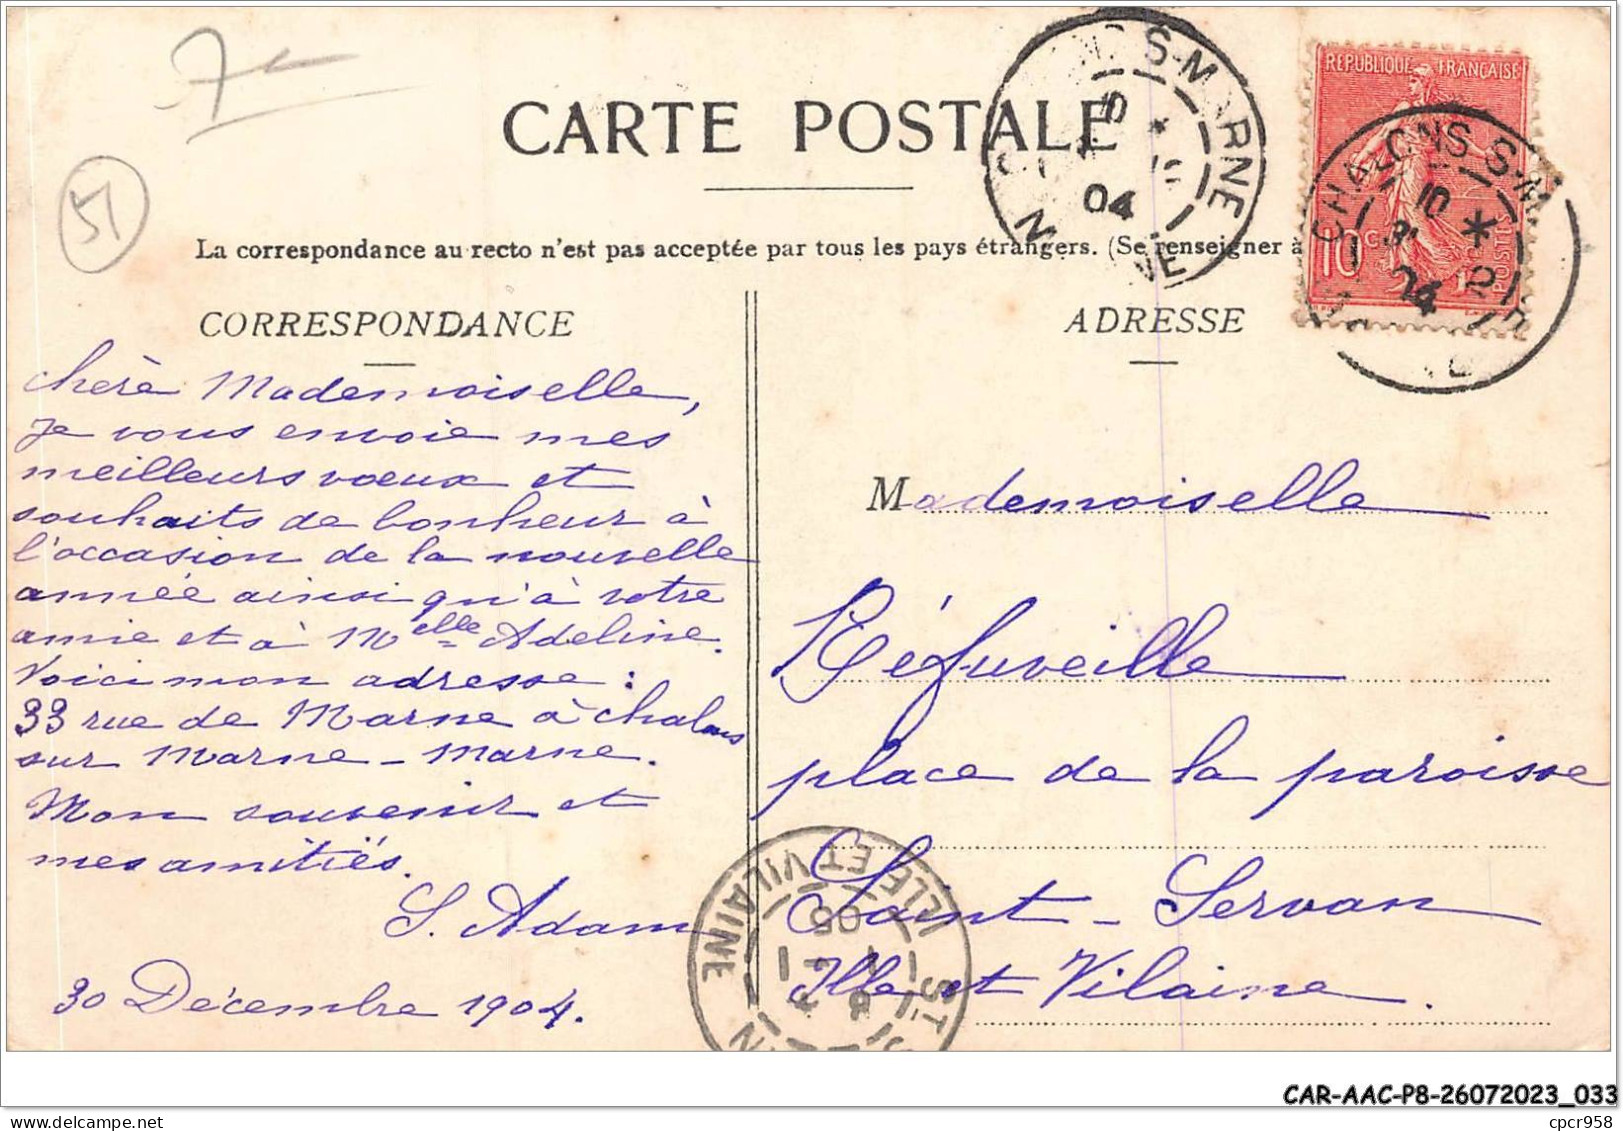 7
51
CARTE POSTALE
La correspondance au recto n'est pas acceptée par tous les pays étrangers. (Se renseigner à
CORRESPONDANCE
chère Mademoiselle,
Je vous envoie mes
meilleurs voeux et
souhaits de bonheur à
l'occasion de la nouvelle
année ainsi qu'à votre
amie et à Melle Adeline.
Voici mon adresse :
33 rue de Marne à chalons
sur Marne - Marne.
Mon souvenir et
mes amitiés.
S. Adam
30 Décembre 1904.
ADRESSE
Mademoiselle
Réfuveille
place de la paroisse
Saint-Servan
Ille et Vilaine.
REPUBLIQUE FRANÇAISE
10 c
POSTES
CHALONS S-M
S-MARNE
04
ILLE ET VILAINE
05
CAR-AAC-P8-26072023_033
cpcr958